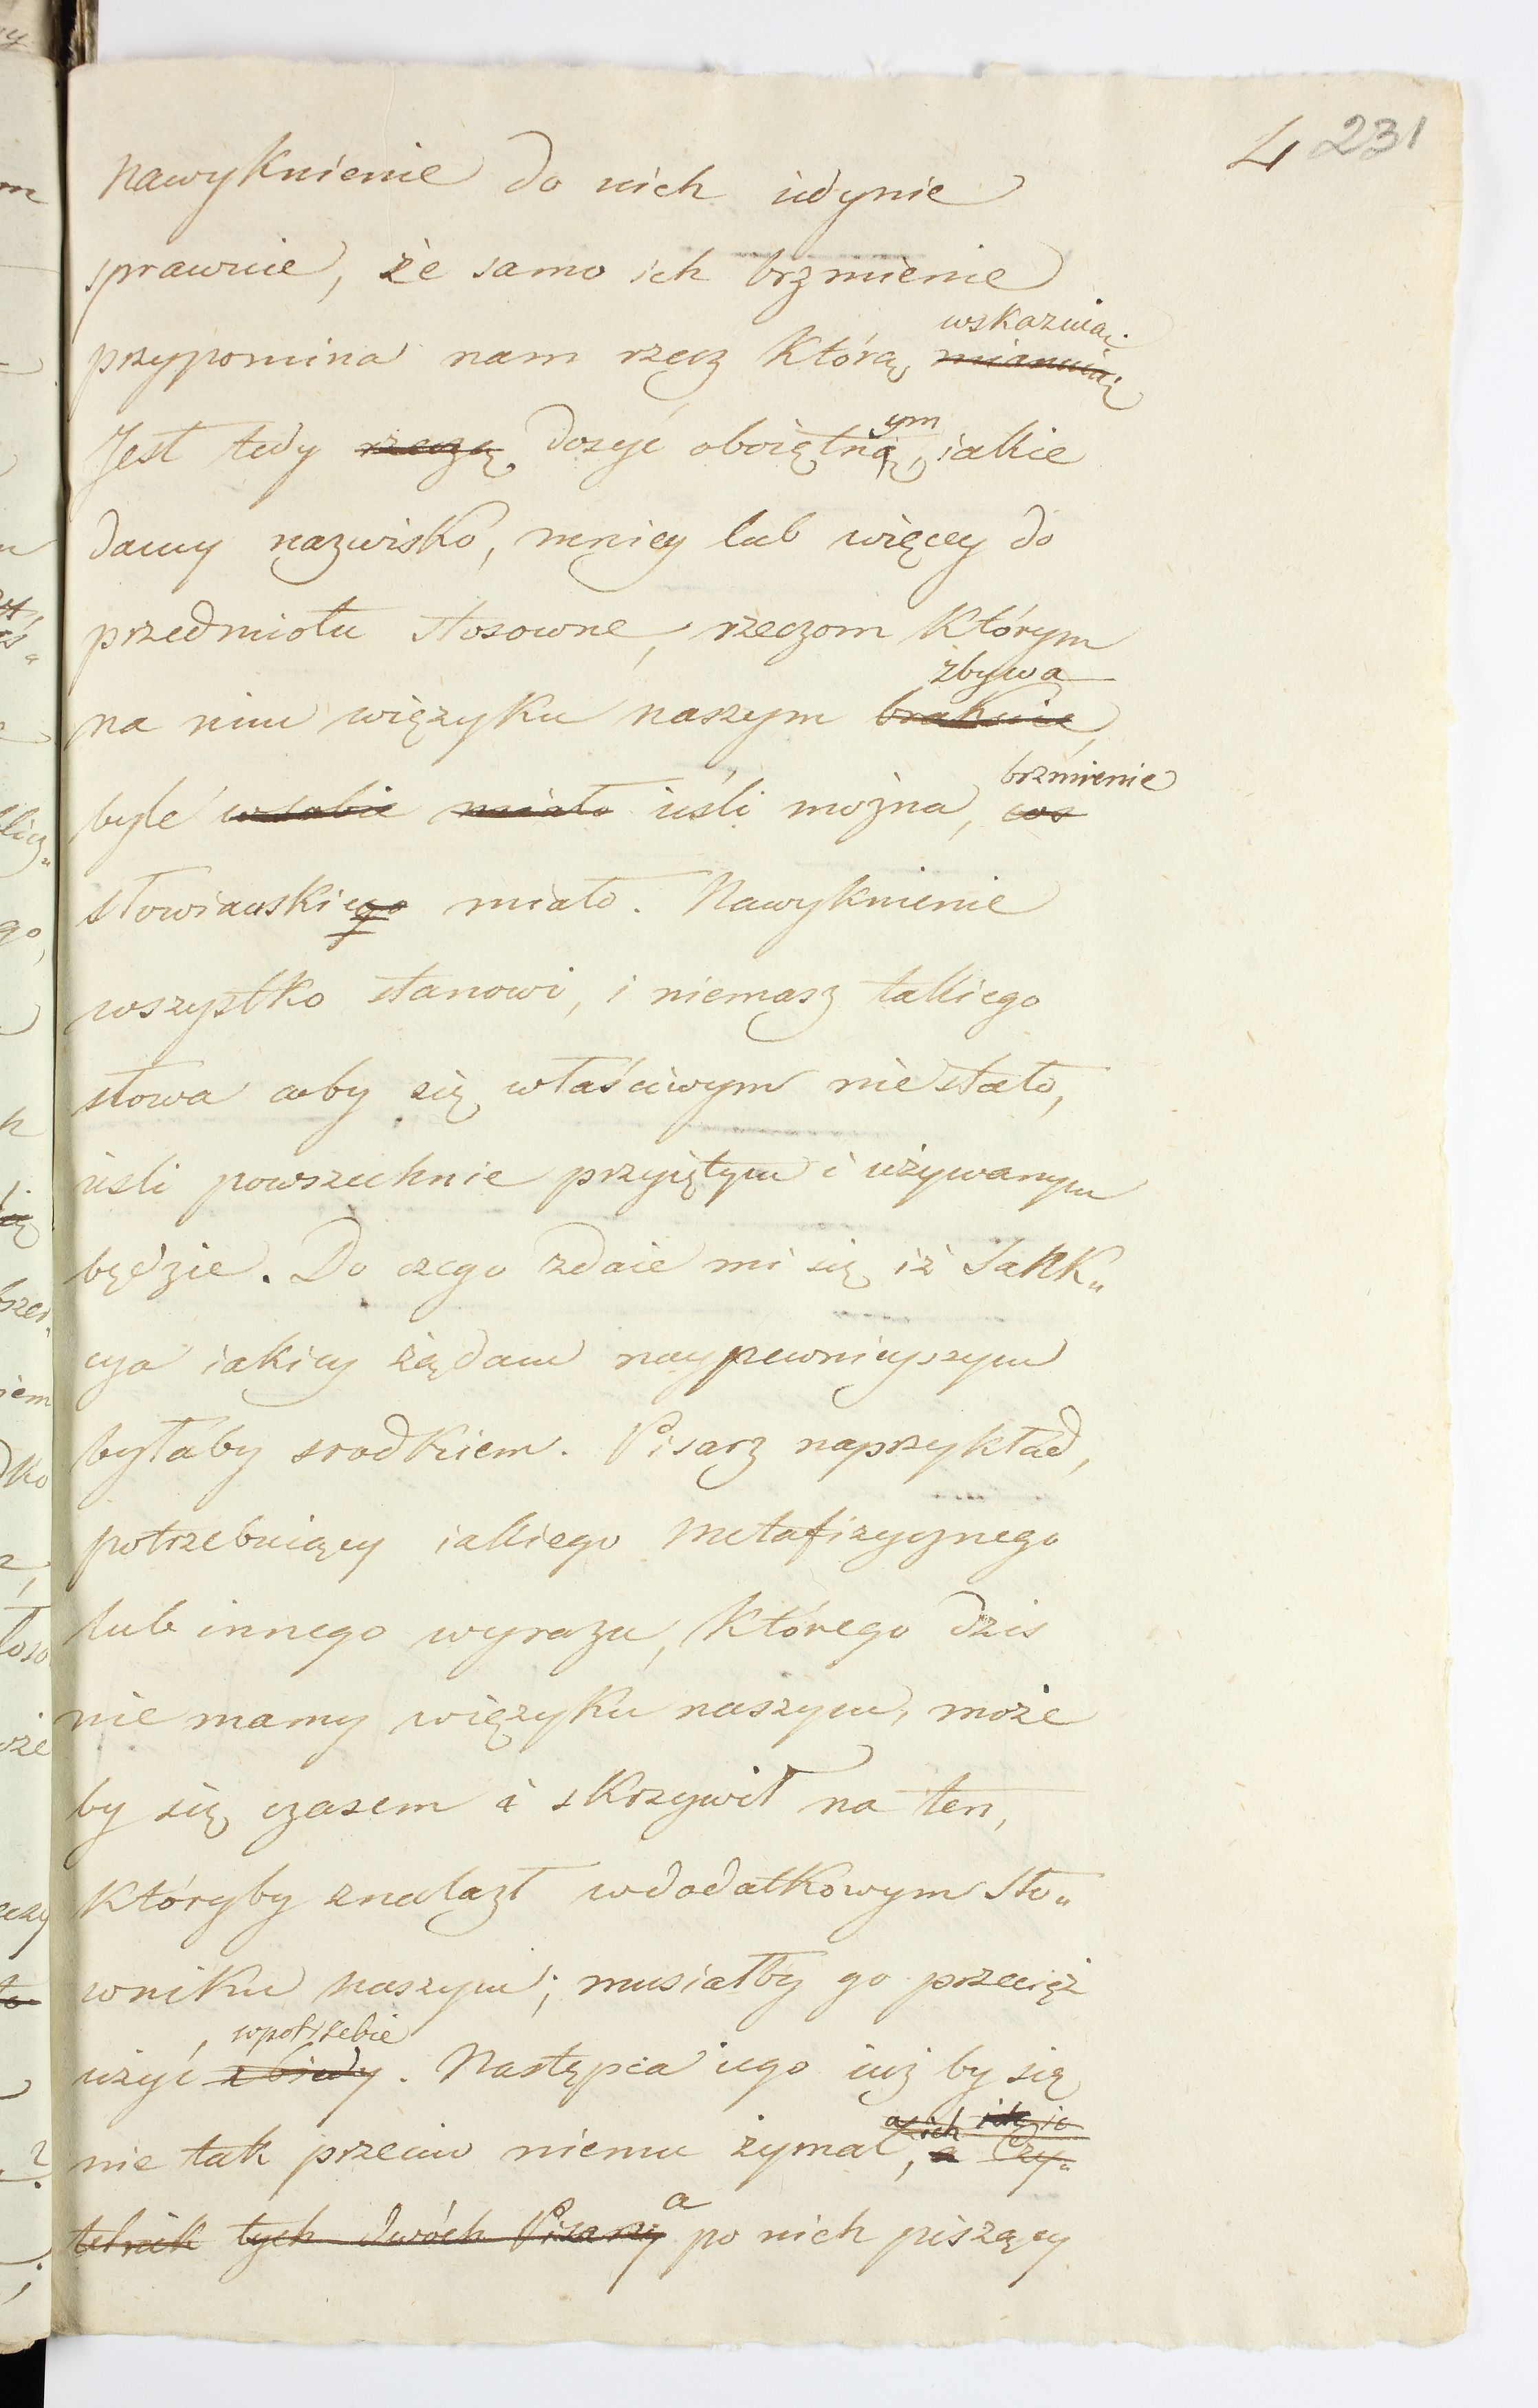 4 231
nawyknienie do nich iedynie
sprawuie, że samo ich brzmienie
wskazuią.
przypomina nam rzecz którą mianuią
ym
Jest tedy rzeczą dosyć oboiętną, iakie
damy nazwisko, mniey lub więcey do
przedmiotu stosowne, rzeczom którym
zbywa
na niem więzyku naszym brakuie,
brzmienie
byle wsobie miało ieśli można, cos
słowianskiego miało. Nawyknienie
wszystko stanowi, i niemasz takiego
słowa coby się właściwym nie stało,
ieśli powszechnie przyiętym i używanym
będzie. Do czego zdaie mi się iż Sank„
cya iakiey żądam naypewnieyszym
byłaby srodkiem. Pisarz naprzykład,
potrzebuiący iakiego metafizycznego
lub innego wyrazu, którego dzis
nie mamy więzyku naszym, może
by się czasem i skrzywił na ten,
któryby znalazł wdodatkowym Sło„
wniku naszym; musiałby go przecięż
wpotrzebie
użyć z biedy. Następca iego iuż by się
nie tak przeciw niemu zymał, a Czy„
a
telnik tych dwóch Pisarzy po nich piszący